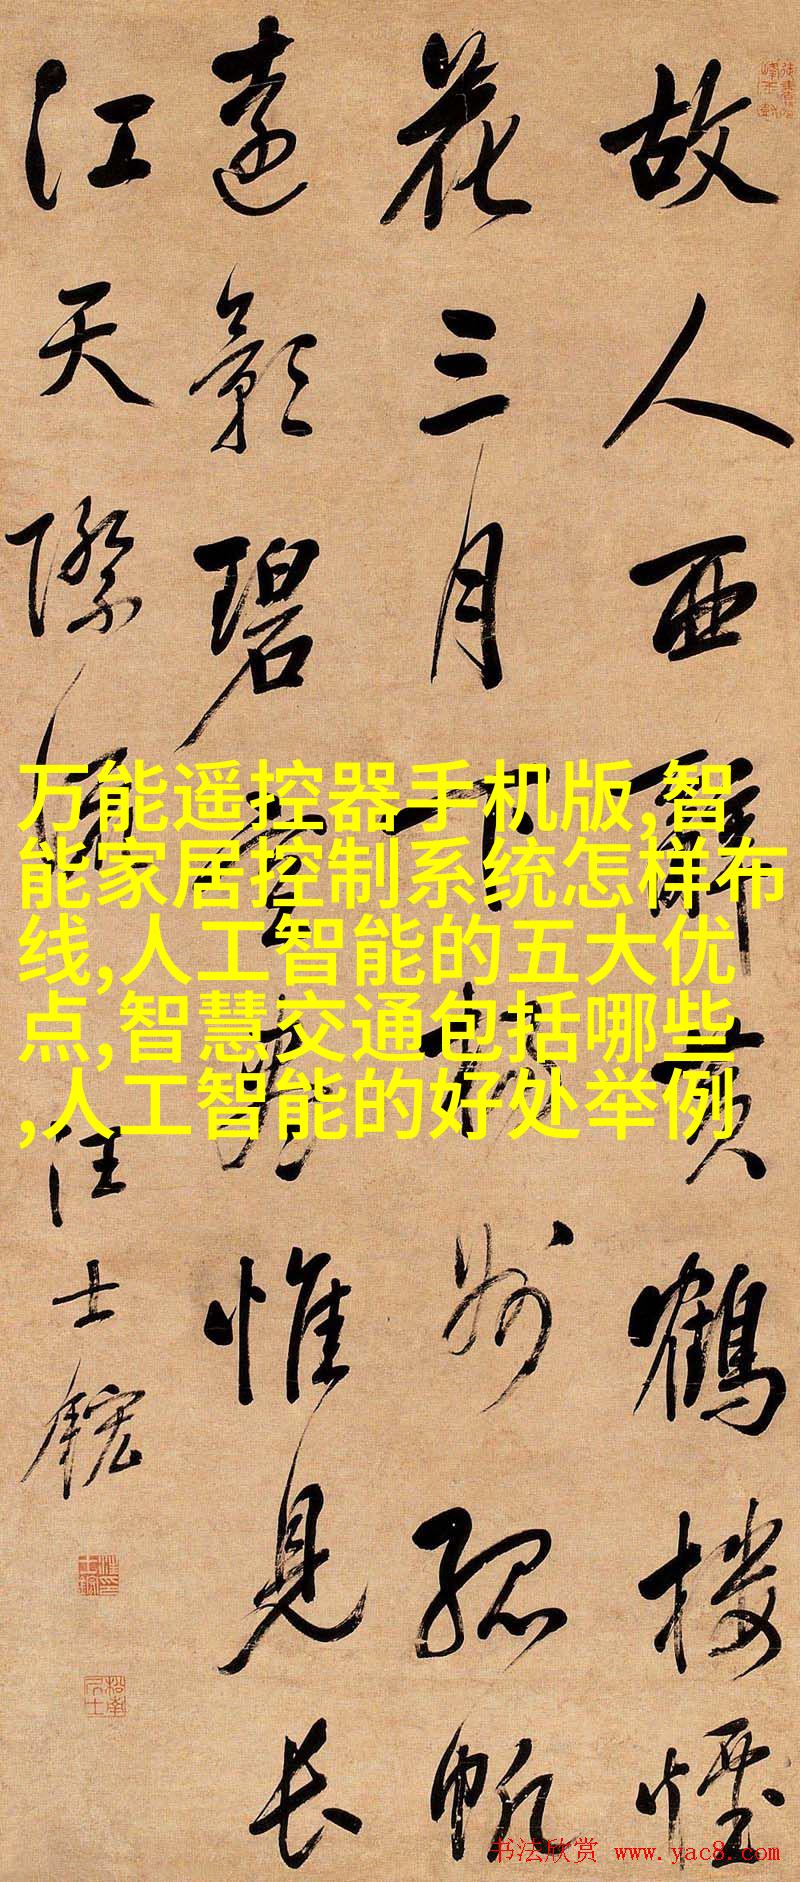 故人西辭黃鶴樓煙
花三月下揚州孤帆
遠影碧惟見長
江天際流 汪士鋐
万能遥控器手机版,智
能家居控制系统怎样布
线,人工智能的五大优
点,智慧交通包括哪些
,人工智能的好处举例
书法欣赏 www.yac8.com